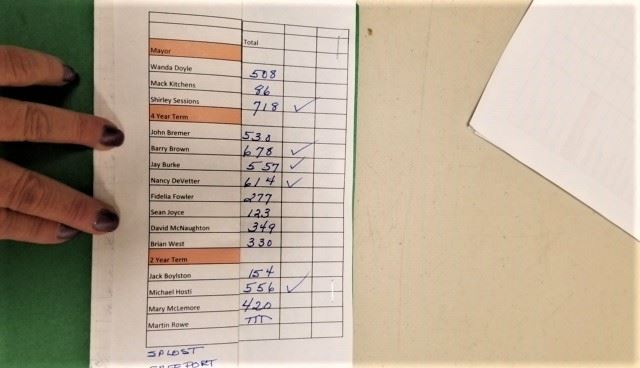 Total
Mayor
Wanda Doyle 508
Mack Kitchens 86
Shirley Sessions 718 ✓
4 Year Term
John Bremer 530
Barry Brown 678 ✓
Jay Burke 557 ✓
Nancy DeVetter 614 ✓
Fidelia Fowler 277
Sean Joyce 123
David McNaughton 349
Brian West 330
2 Year Term
Jack Boylston 154
Michael Hosti 556 ✓
Mary McLemore 420
Martin Rowe
SPLOST
FREEPORT